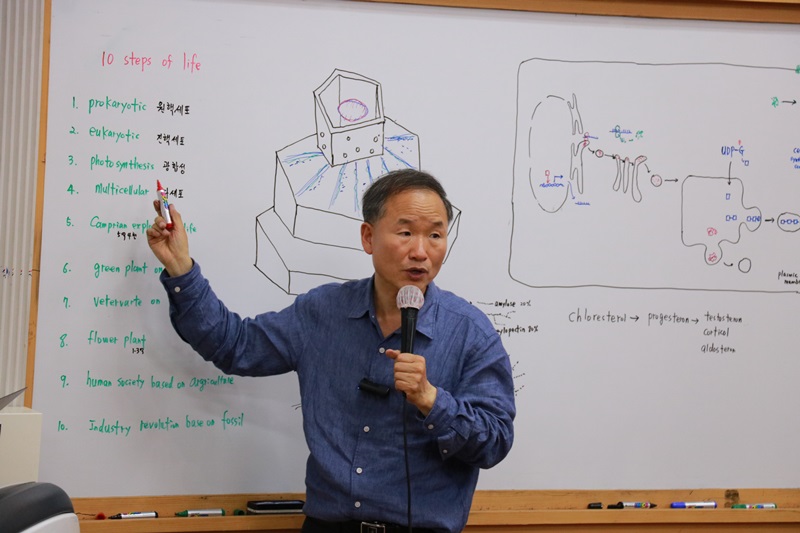 10 steps of life
1. prokaryotic 원핵세포
2. eukaryotic 진핵세포
3. photosynthesis 광합성
4. multicellular 세포
5. Camprian life
6. green plant on
7. veteruarte on
8. flower plant
1.3억
9. human society based on argriculture
10. Industry revolution base on fossil
UDP-G
plasmic
amylose 20%
80%
Chloresterol → progesteron → testosteron
cortisol
aldosteron